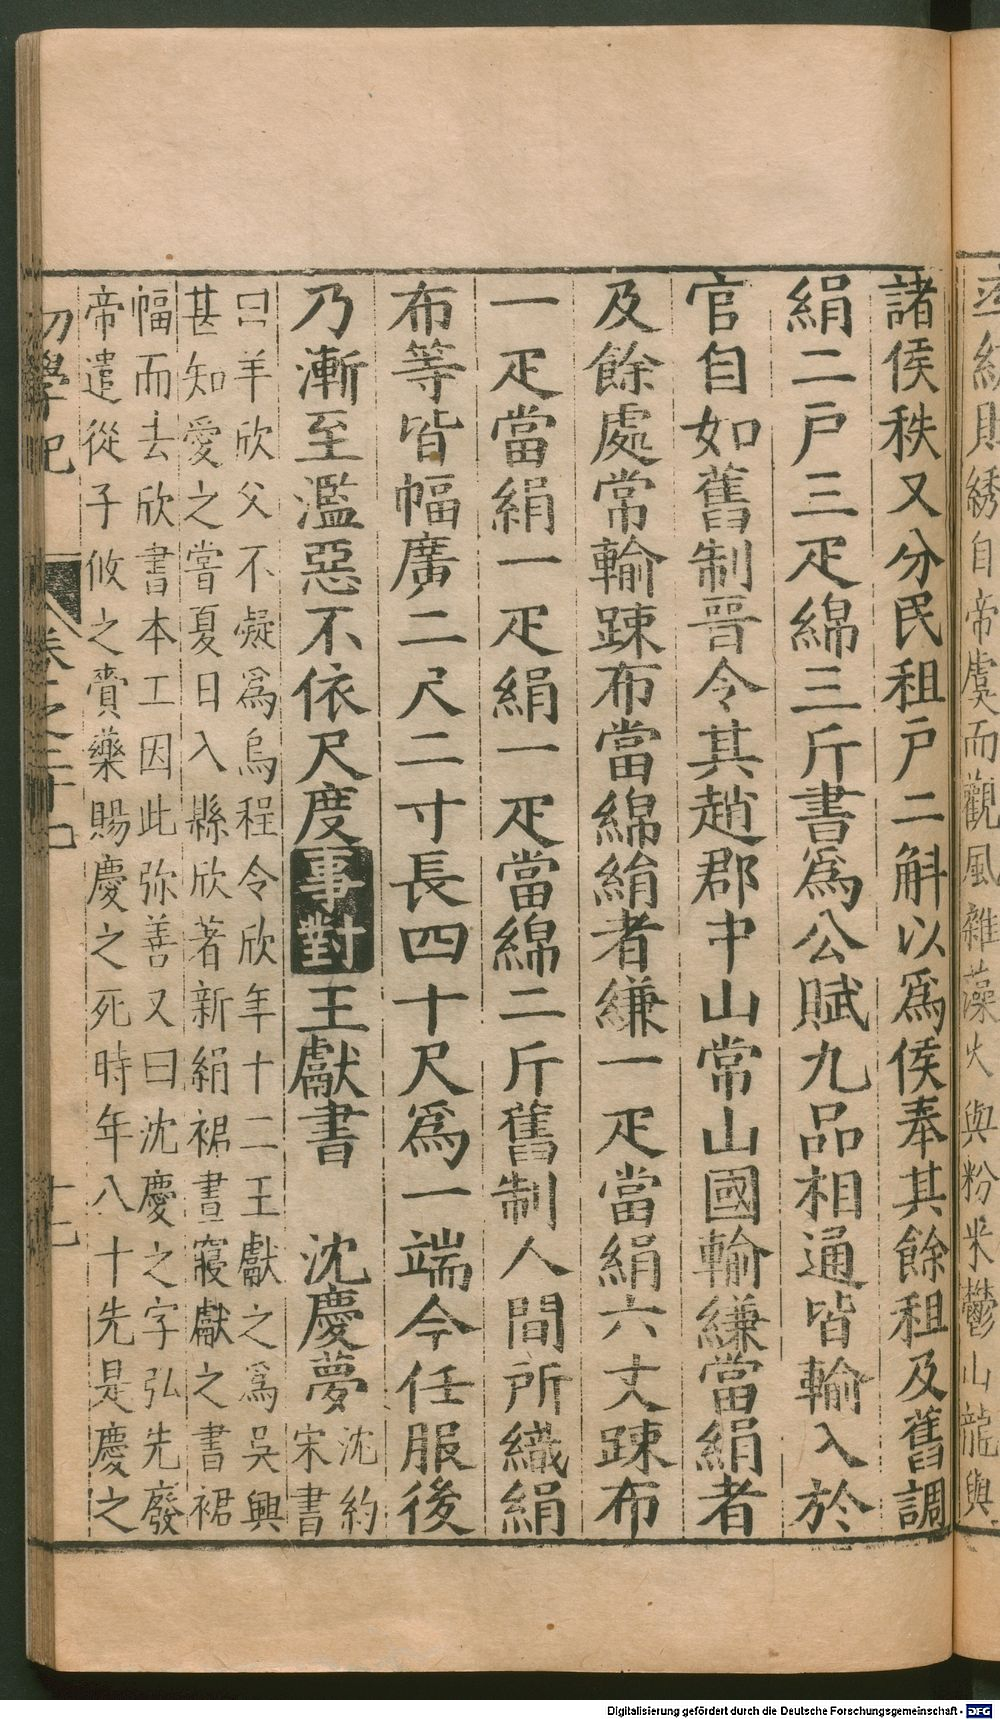 諸侯秩又分民租戸二斛以爲侯奉其餘租及舊調
絹二戸三疋綿三斤書爲公賦九品相通皆輸入於
官自如舊制晉令其趙郡中山常山國輸縑當絹者
及餘處常輸踈布當綿絹者縑一疋當絹六丈踈布
一疋當絹一疋絹一疋當綿二斤舊制人間所織絹
布等皆幅廣二尺二寸長四十尺爲一端今任服後
乃漸至濫惡不依尺度事對王獻書 沈慶夢沈約
宋書
曰羊欣父不疑爲烏程令欣年十二王獻之爲吳興
甚知愛之嘗夏日入縣欣著新絹裙晝寢獻之書裙
幅而去欣書本工因此弥善又曰沈慶之字弘先廢
帝遣從子攸之賫藥賜慶之死時年八十先是慶之
初學記 卷之二十七 十七
Digitalisierung gefördert durch die Deutsche Forschungsgemeinschaft - DFG